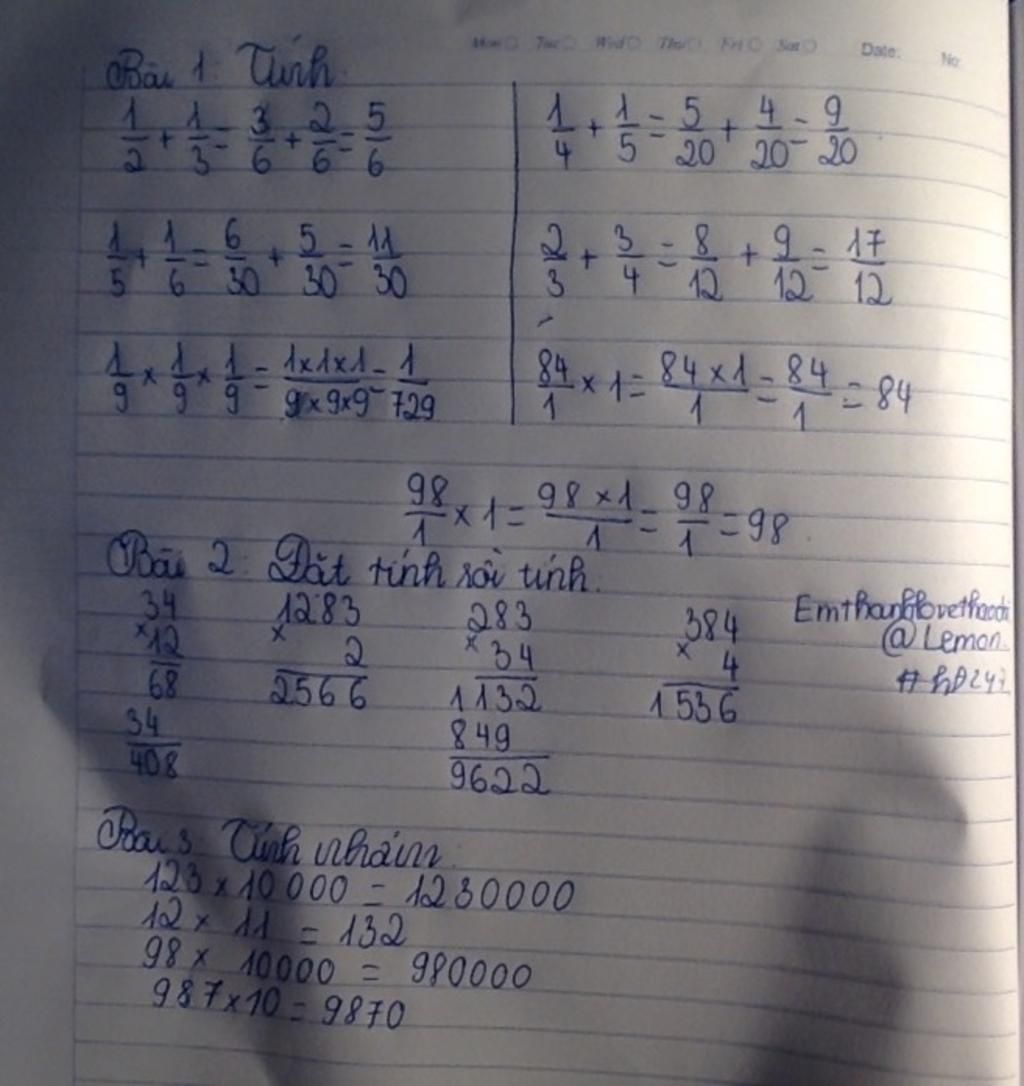 Mon Tue Wed Thu Fri Sat Date: No:
Bài 1: Tính
1/2 + 1/3 = 3/6 + 2/6 = 5/6
1/4 + 1/5 = 5/20 + 4/20 = 9/20
1/5 + 1/6 = 6/30 + 5/30 = 11/30
2/3 + 3/4 = 8/12 + 9/12 = 17/12
1/9 × 1/9 × 1/9 = 1×1×1/9×9×9 = 1/729
84/1 × 1 = 84×1/1 = 84/1 = 84
98/1 × 1 = 98×1/1 = 98/1 = 98
Bài 2: Đặt tính rồi tính.
34 1283 283 384
× 12 × 2 × 34 × 4
68 2566 1132 1536
34 849
408 9622
@Lemon
Bài 3: Tính nhẩm
123 × 10 000 = 1230000
12 × 11 = 132
98 × 10000 = 980000
987 × 10 = 9870